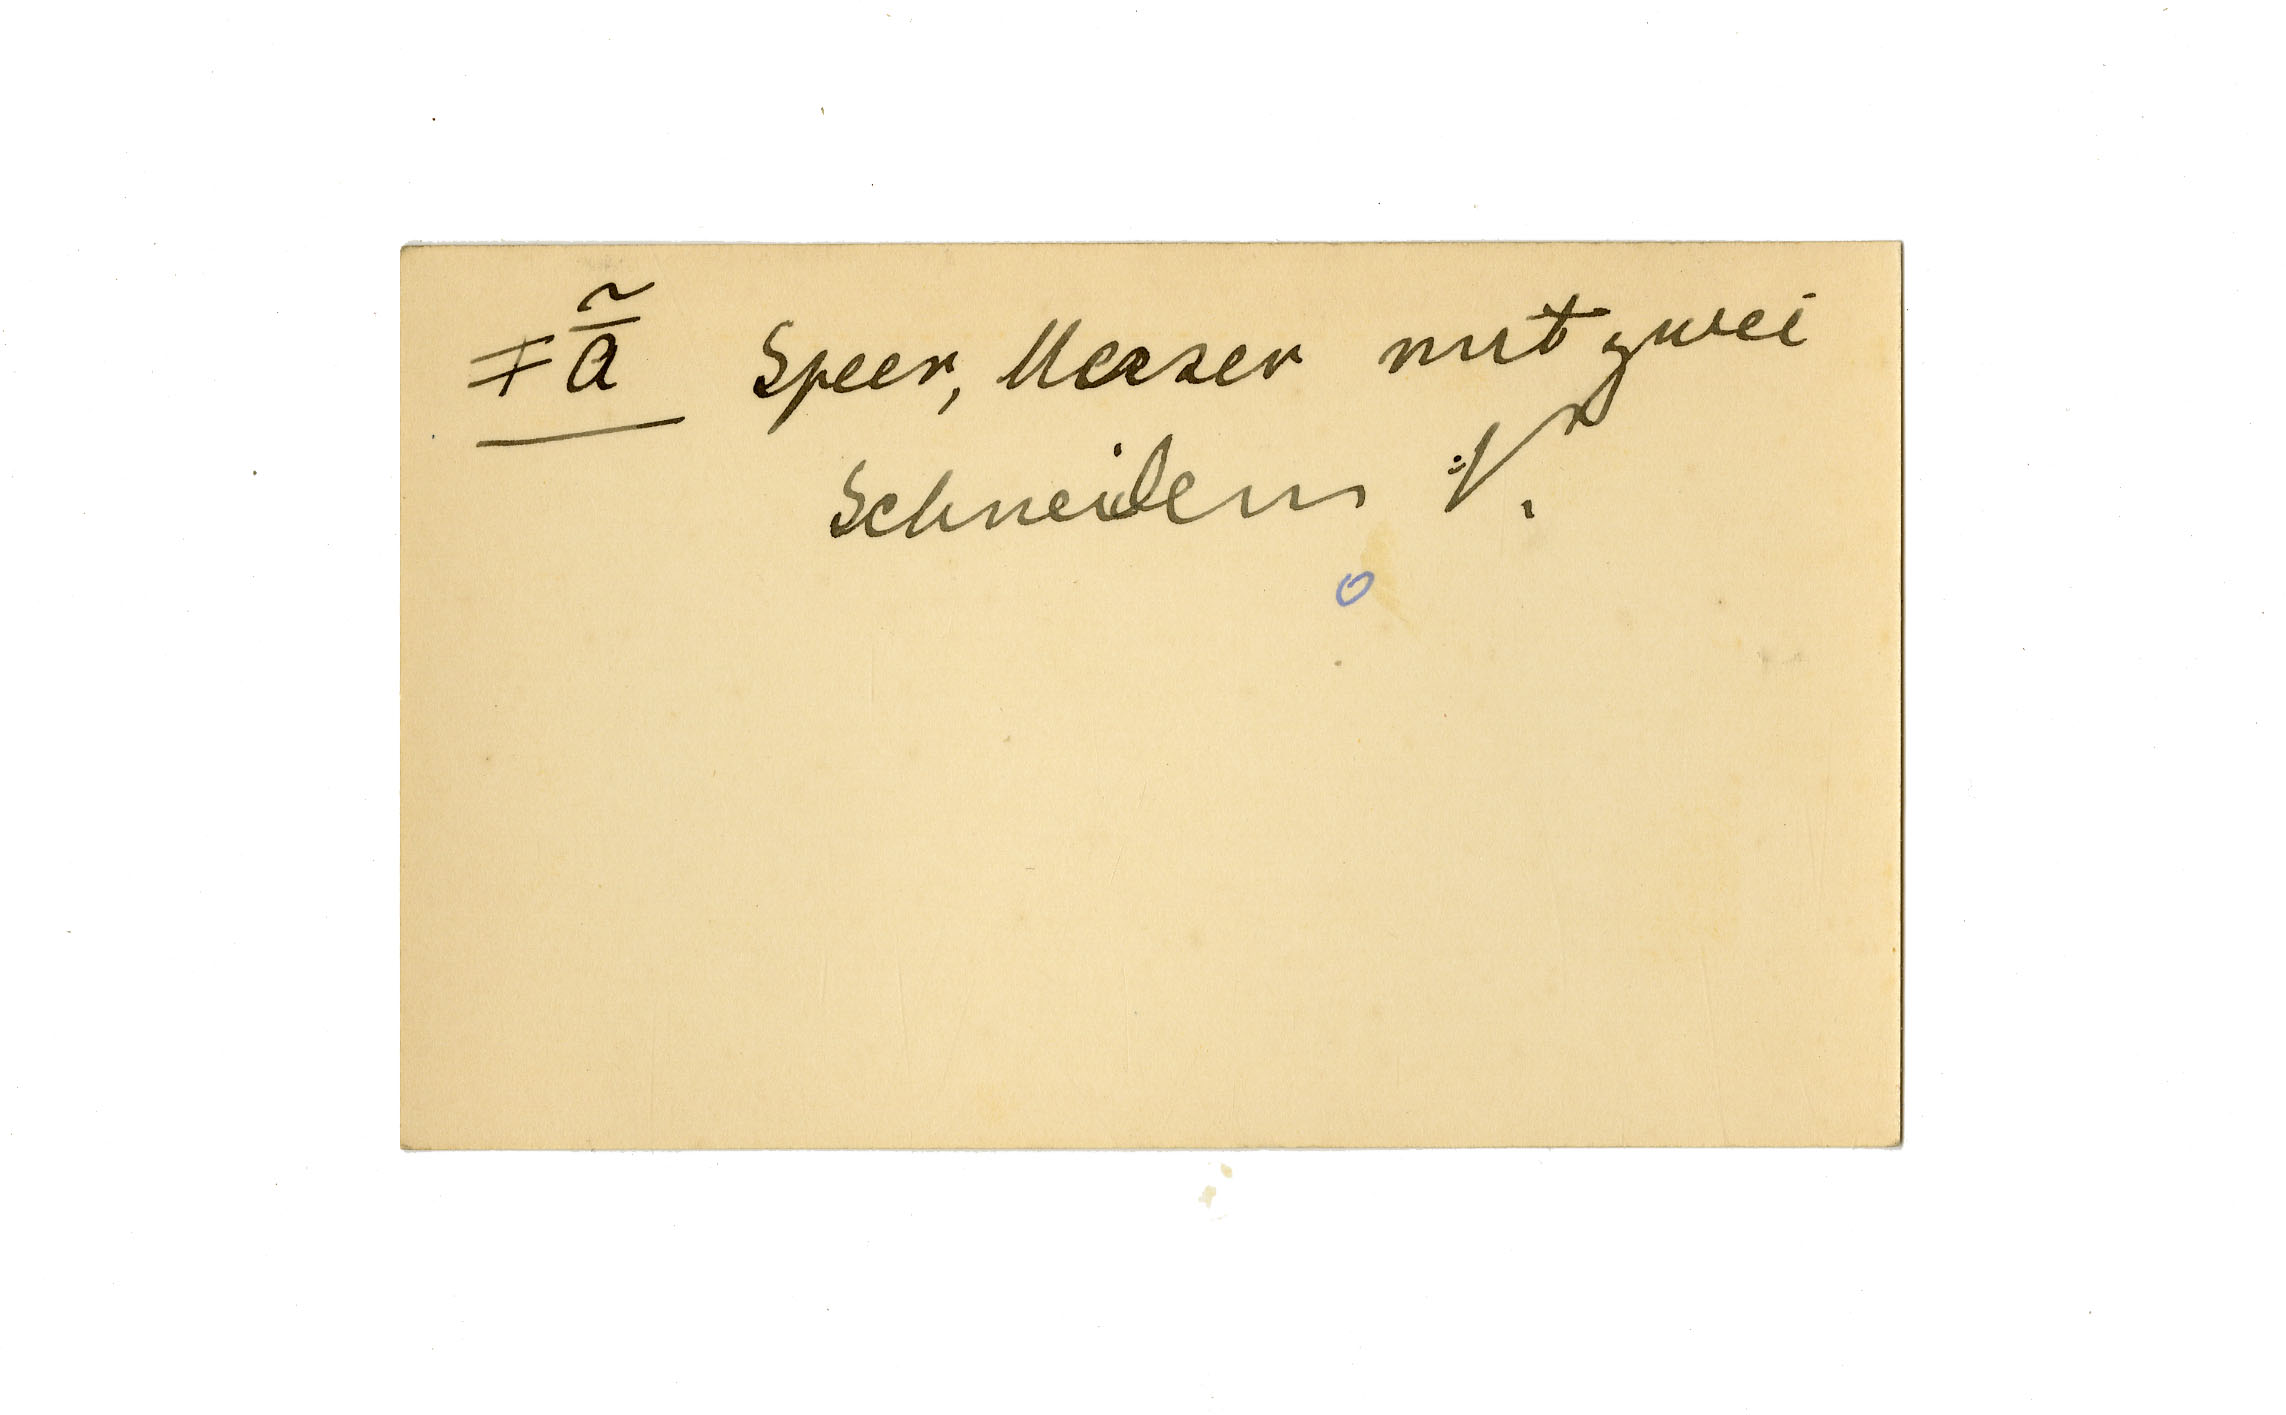 ǂã̄ Speer, Messer mit zwei
Schneiden V.
o